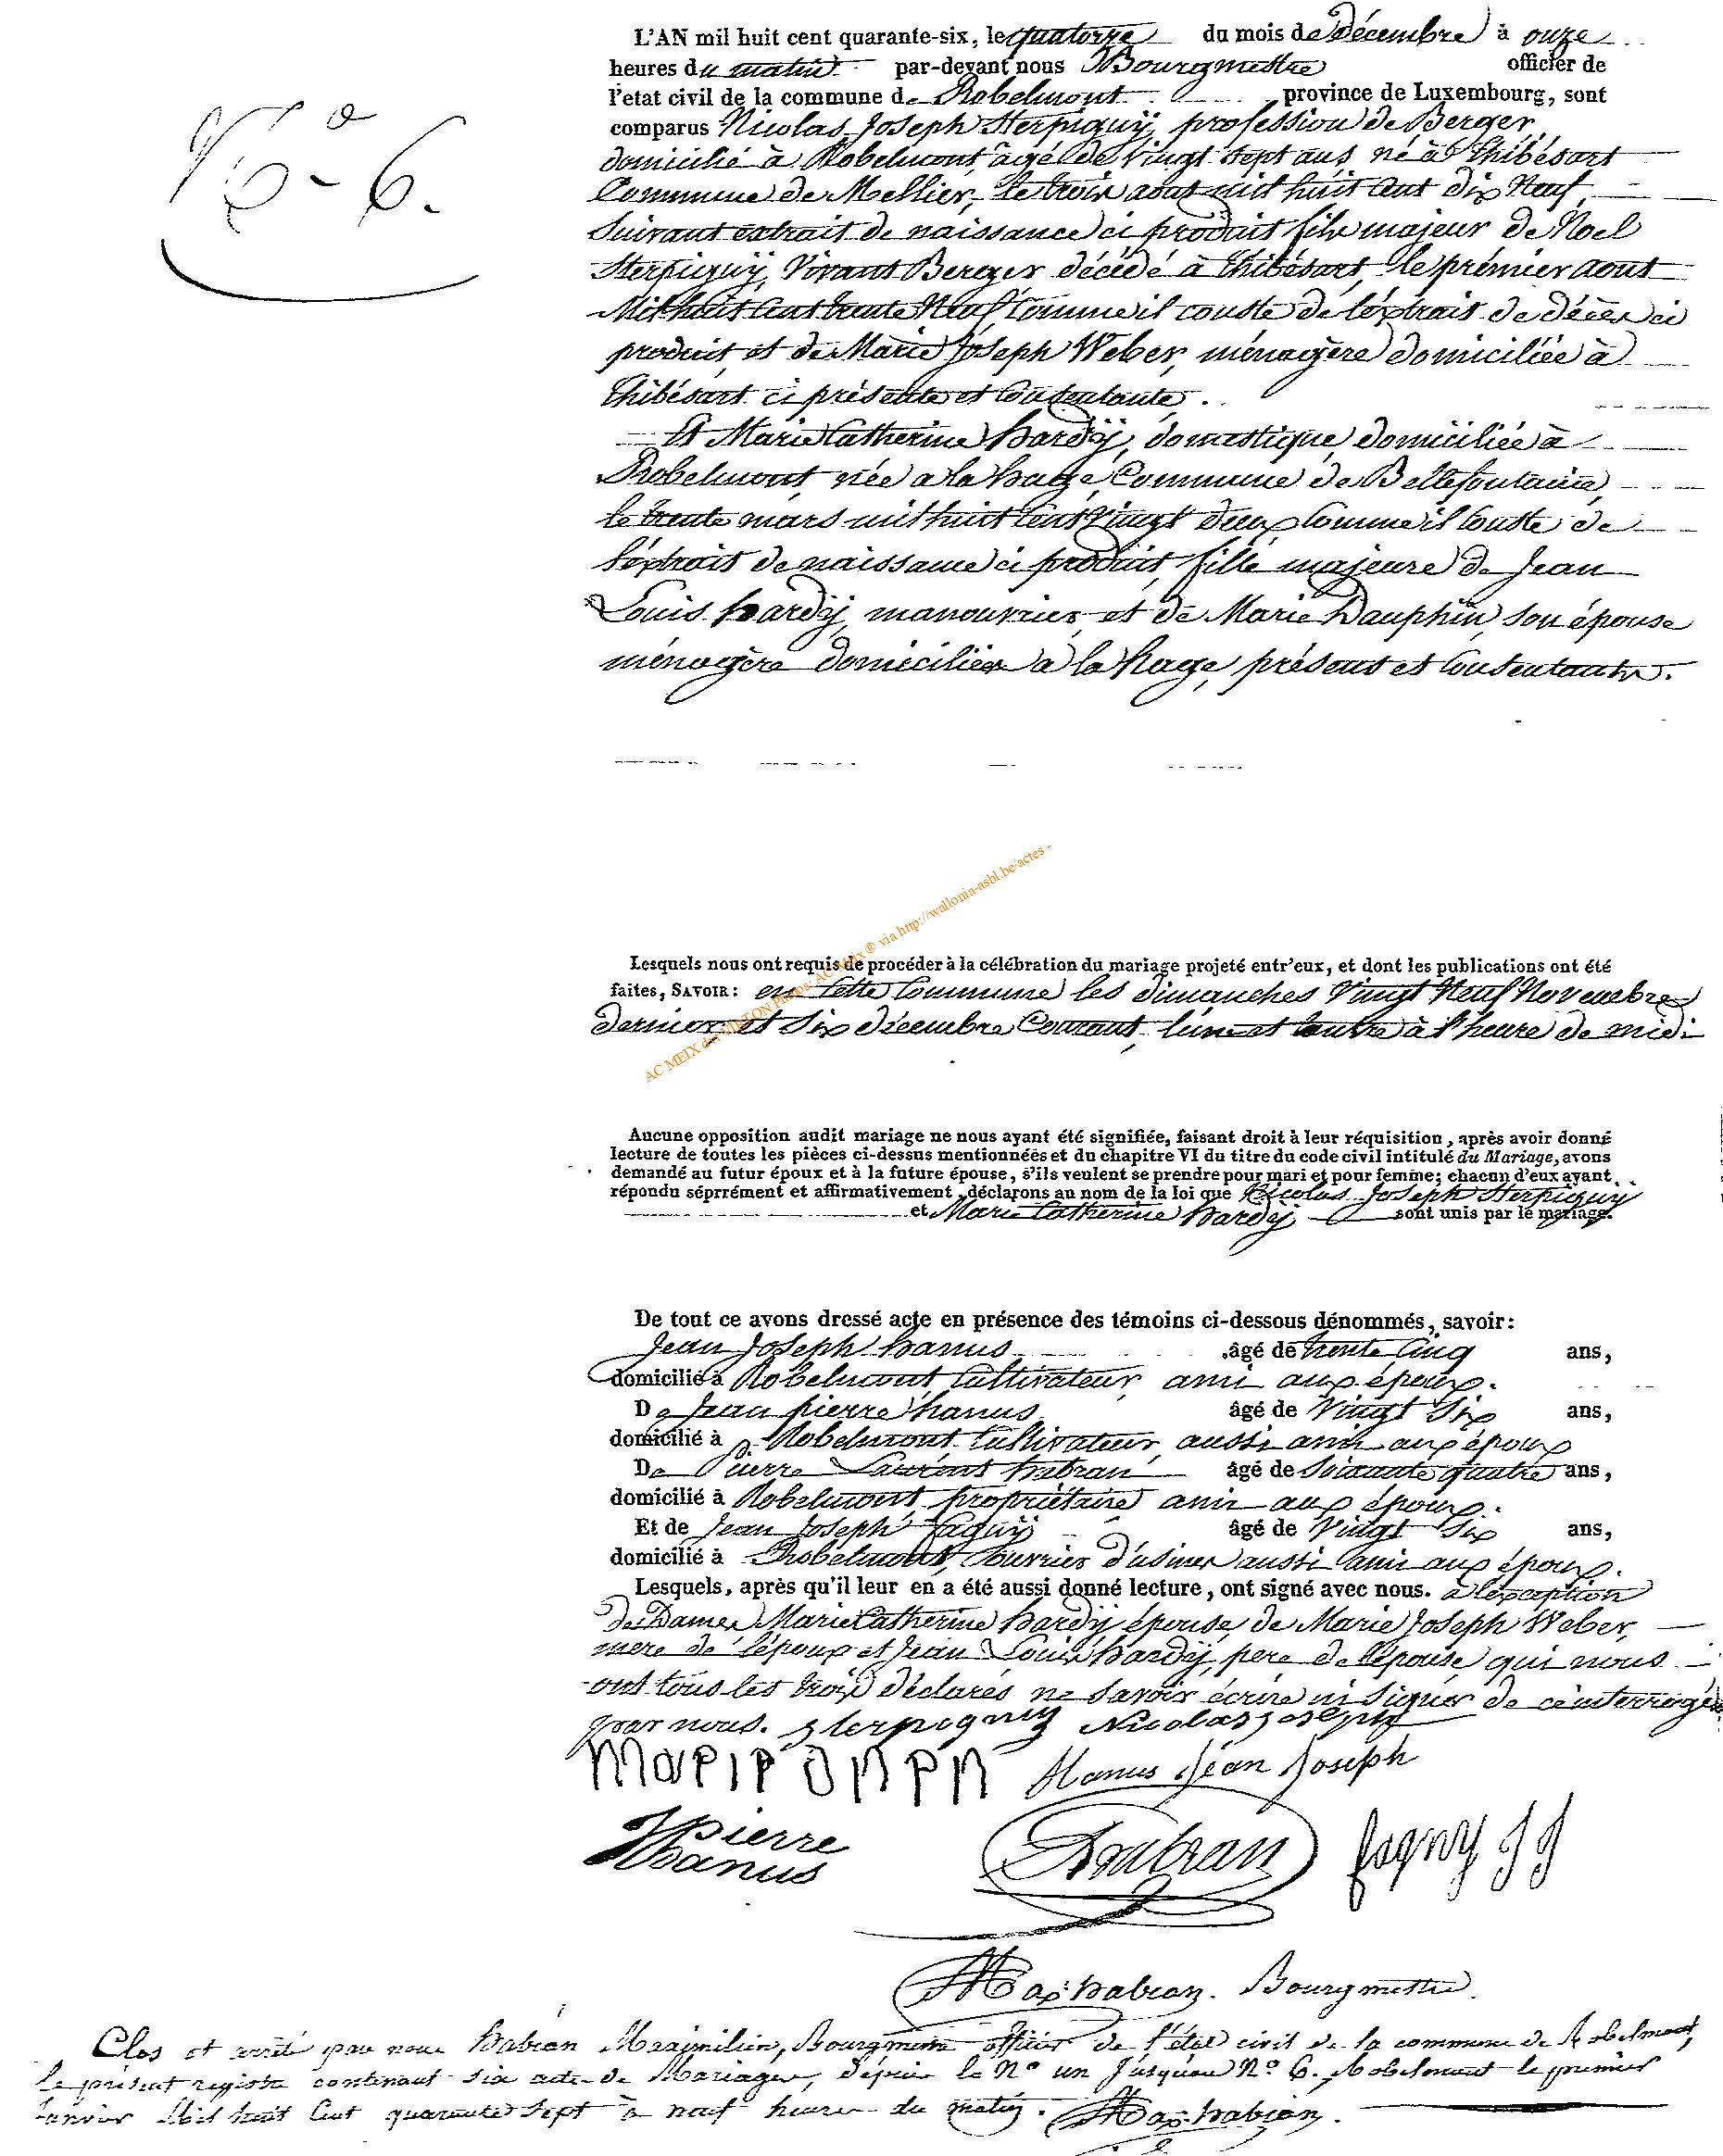 N° 6.
L'AN mil huit cent quarante-six, le quatorze du mois de Décembre à onze
heures du matin par-devant nous Bourgmestre officier de
l'etat civil de la commune de Robelmont province de Luxembourg, sont
comparus Nicolas Joseph Sterpigny, profession de Berger,
domicilié à Robelmont, âgé de vingt sept ans, né à Thibésart
Commune de Mellier, le trois aout mil huit cent dix Neuf
Suivant extrait de naissance ci produit, fils majeur de Noel
Sterpigny, vivant Berger décédé à Thibésart, le prémier aout
Mil huit cent trente Neuf comme il conste de l'extrait de décès ci
produit, et de Marie Joseph Weber, ménagère domiciliée à
Thibésart ci présente et consentante.
Et Marie Catherine hardÿ, domestique, domiciliée à
Robelmont, née a la hage, Commune de Bellefontaine,
le trente mars mil huit cent vingt deux comme il conste de
l'extrait de naissance ci produit, fille majeure de Jean
Louis hardÿ, manouvrier et de Marie Dauphin, son épouse
ménagère domiciliés à la hage, présens et consentants.
Lesquels nous ont requis de procéder à la célébration du mariage projeté entr'eux, et dont les publications ont été
faites, SAVOIR: en cette Commune les dimanches vingt Neuf Novembre
dernier et six décembre courant, l'une et l'autre à l'heure de midi
AC MEIX dt VIRTON Photos: AC MEix® via http://wallonia-asbl.be/actes -
Aucune opposition audit mariage ne nous ayant été signifiée, faisant droit à leur réquisition, après avoir donné
lecture de toutes les pièces ci-dessus mentionnéés et du chapitre VI du titre du code civil intitulé du Mariage, avons
demandé au futur époux et à la future épouse, s'ils veulent se prendre pour mari et pour femme; chacun d'eux ayant
répondu séprrément et affirmativement, déclarons au nom de la loi que Nicolas Joseph Sterpigny
et Marie Catherine hardÿ sont unis par le mariage.
De tout ce avons dressé acte en présence des témoins ci-dessous dénommés, savoir:
Jean Joseph hanus âgé de trente cinq ans,
domicilié à Robelmont cultivateur, ami aux époux.
De Jean pierre hanus âgé de vingt six ans,
domicilié à Robelmont cultivateur, aussi ami aux époux
De Pierre Laurent habran âgé de soixante quatre ans,
domicilié à Robelmont, propriétaire ami aux époux.
Et de Jean Joseph fagnÿ âgé de vingt six ans,
domicilié à Robelmont, ouvrier d'usines aussi ami aux époux.
Lesquels, après qu'il leur en a été aussi donné lecture, ont signé avec nous. à l'exception
de Dames Marie Catherine hardÿ épouse, de Marie Joseph Weber,
mere de l'époux et Jean Louis hardÿ, pere de l'épouse qui nous
ont tous les trois déclarés ne savoir écrire ni signer de ce interrogés
par nous. sterpigny Nicolas joseph
Hanus Jean Joseph
pierre
hanus
habran
fagny J J
Max habran. Bourgmestre.
Clos et arrêté par nous habran Maximilien, Bourgmestre officier de l'état civil de la commune de Robelmont,
le présent registre contenant six actes de Mariages, dépuis le N° un jusqu'au N° 6. Robelmont le premier
Janvier Mil huit Cent quarante sept à neuf heures du matin. Max habran.